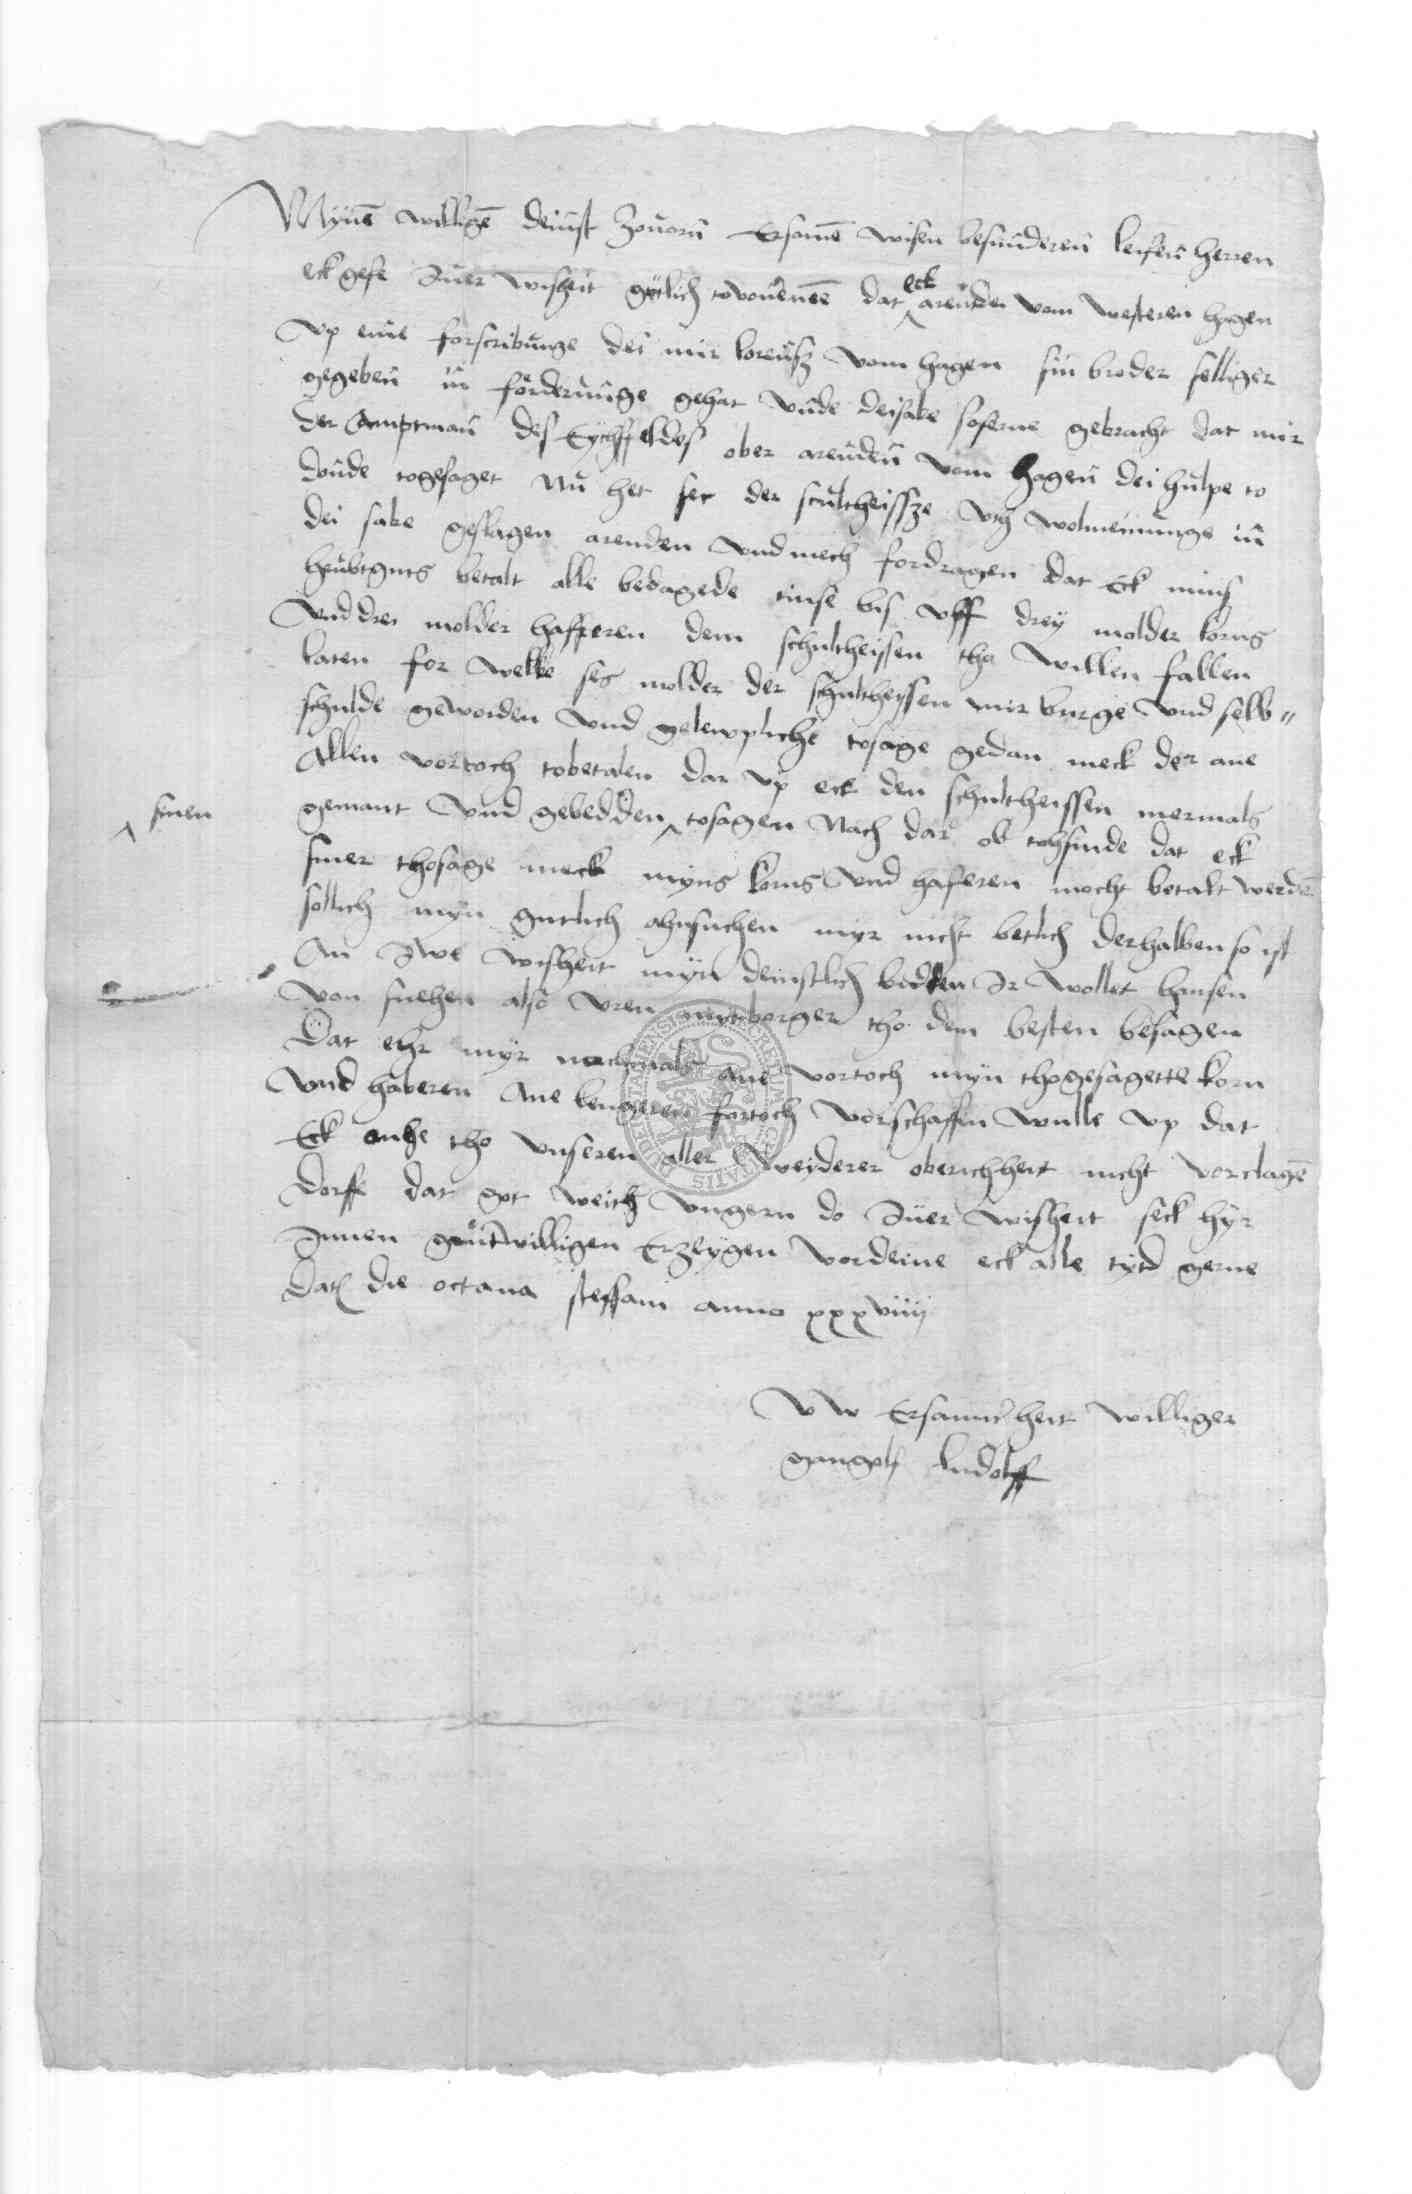 Mynē willigē deinst zouorn Ersamē wisen besunderen leifen herren
eck gefe Juer wisheit gutlich to vornemē dat eck arenden vom westeren hagen
vp eine forscribunge dei mir lorentz vom hagen sin broder selliger
gegeben in forderunge gehat vnde dei sake soferne gebracht dat mir
der Amptman des Eychsfeldes ober arenden vom Hagen dei hulpe to
donde togesaget Nu het sec der scultheissze vth wolmeinunge in
dei sake geslagen arenden vnd mech fordragen dat Eck mins
heubtguts betalt alle bedagede tinse bis vff drey molder korns
vnd drei molder hafferen dem schultheissen tho willen fallen
laten for welke ses molder der schultheyssen mir burge vnd selb=
schulde geworden vnd geloupliche tosage gedan meck der ane
Allen vortoch tobetalen dar vp eck den schultheissen mermals
gemant vnd gebedden tosagen Nach dar ob tohsinde dat eck
sinen
siner thosage meck myns korns vnd haferen mocht betalt werdē
sollich myn gutlich ahnsuchen myr nicht betlich derhalben so ist
An Juwe wisheit myn deinstlich bidden Jr wollet hansen
von suehen also vren mitborger tho dem besten besagen
Dat ehr myr nachmals ane vortoch myn thogesagette korn
vnd haberen Ane lengeren fortoch vorschaffen wulle vp dat
Eck onhe tho vnseren aller weyderer oberichheit nicht vorclagē
dorffe dat got weith vngern do Juer wisheit seck hyr
Jnnen gautwilligen Erzeygen vordeine eck alle tytd gerne
Datū die octaua steffani anno xxxviiij
V W Ersamicheit williger
gangolf ludolff